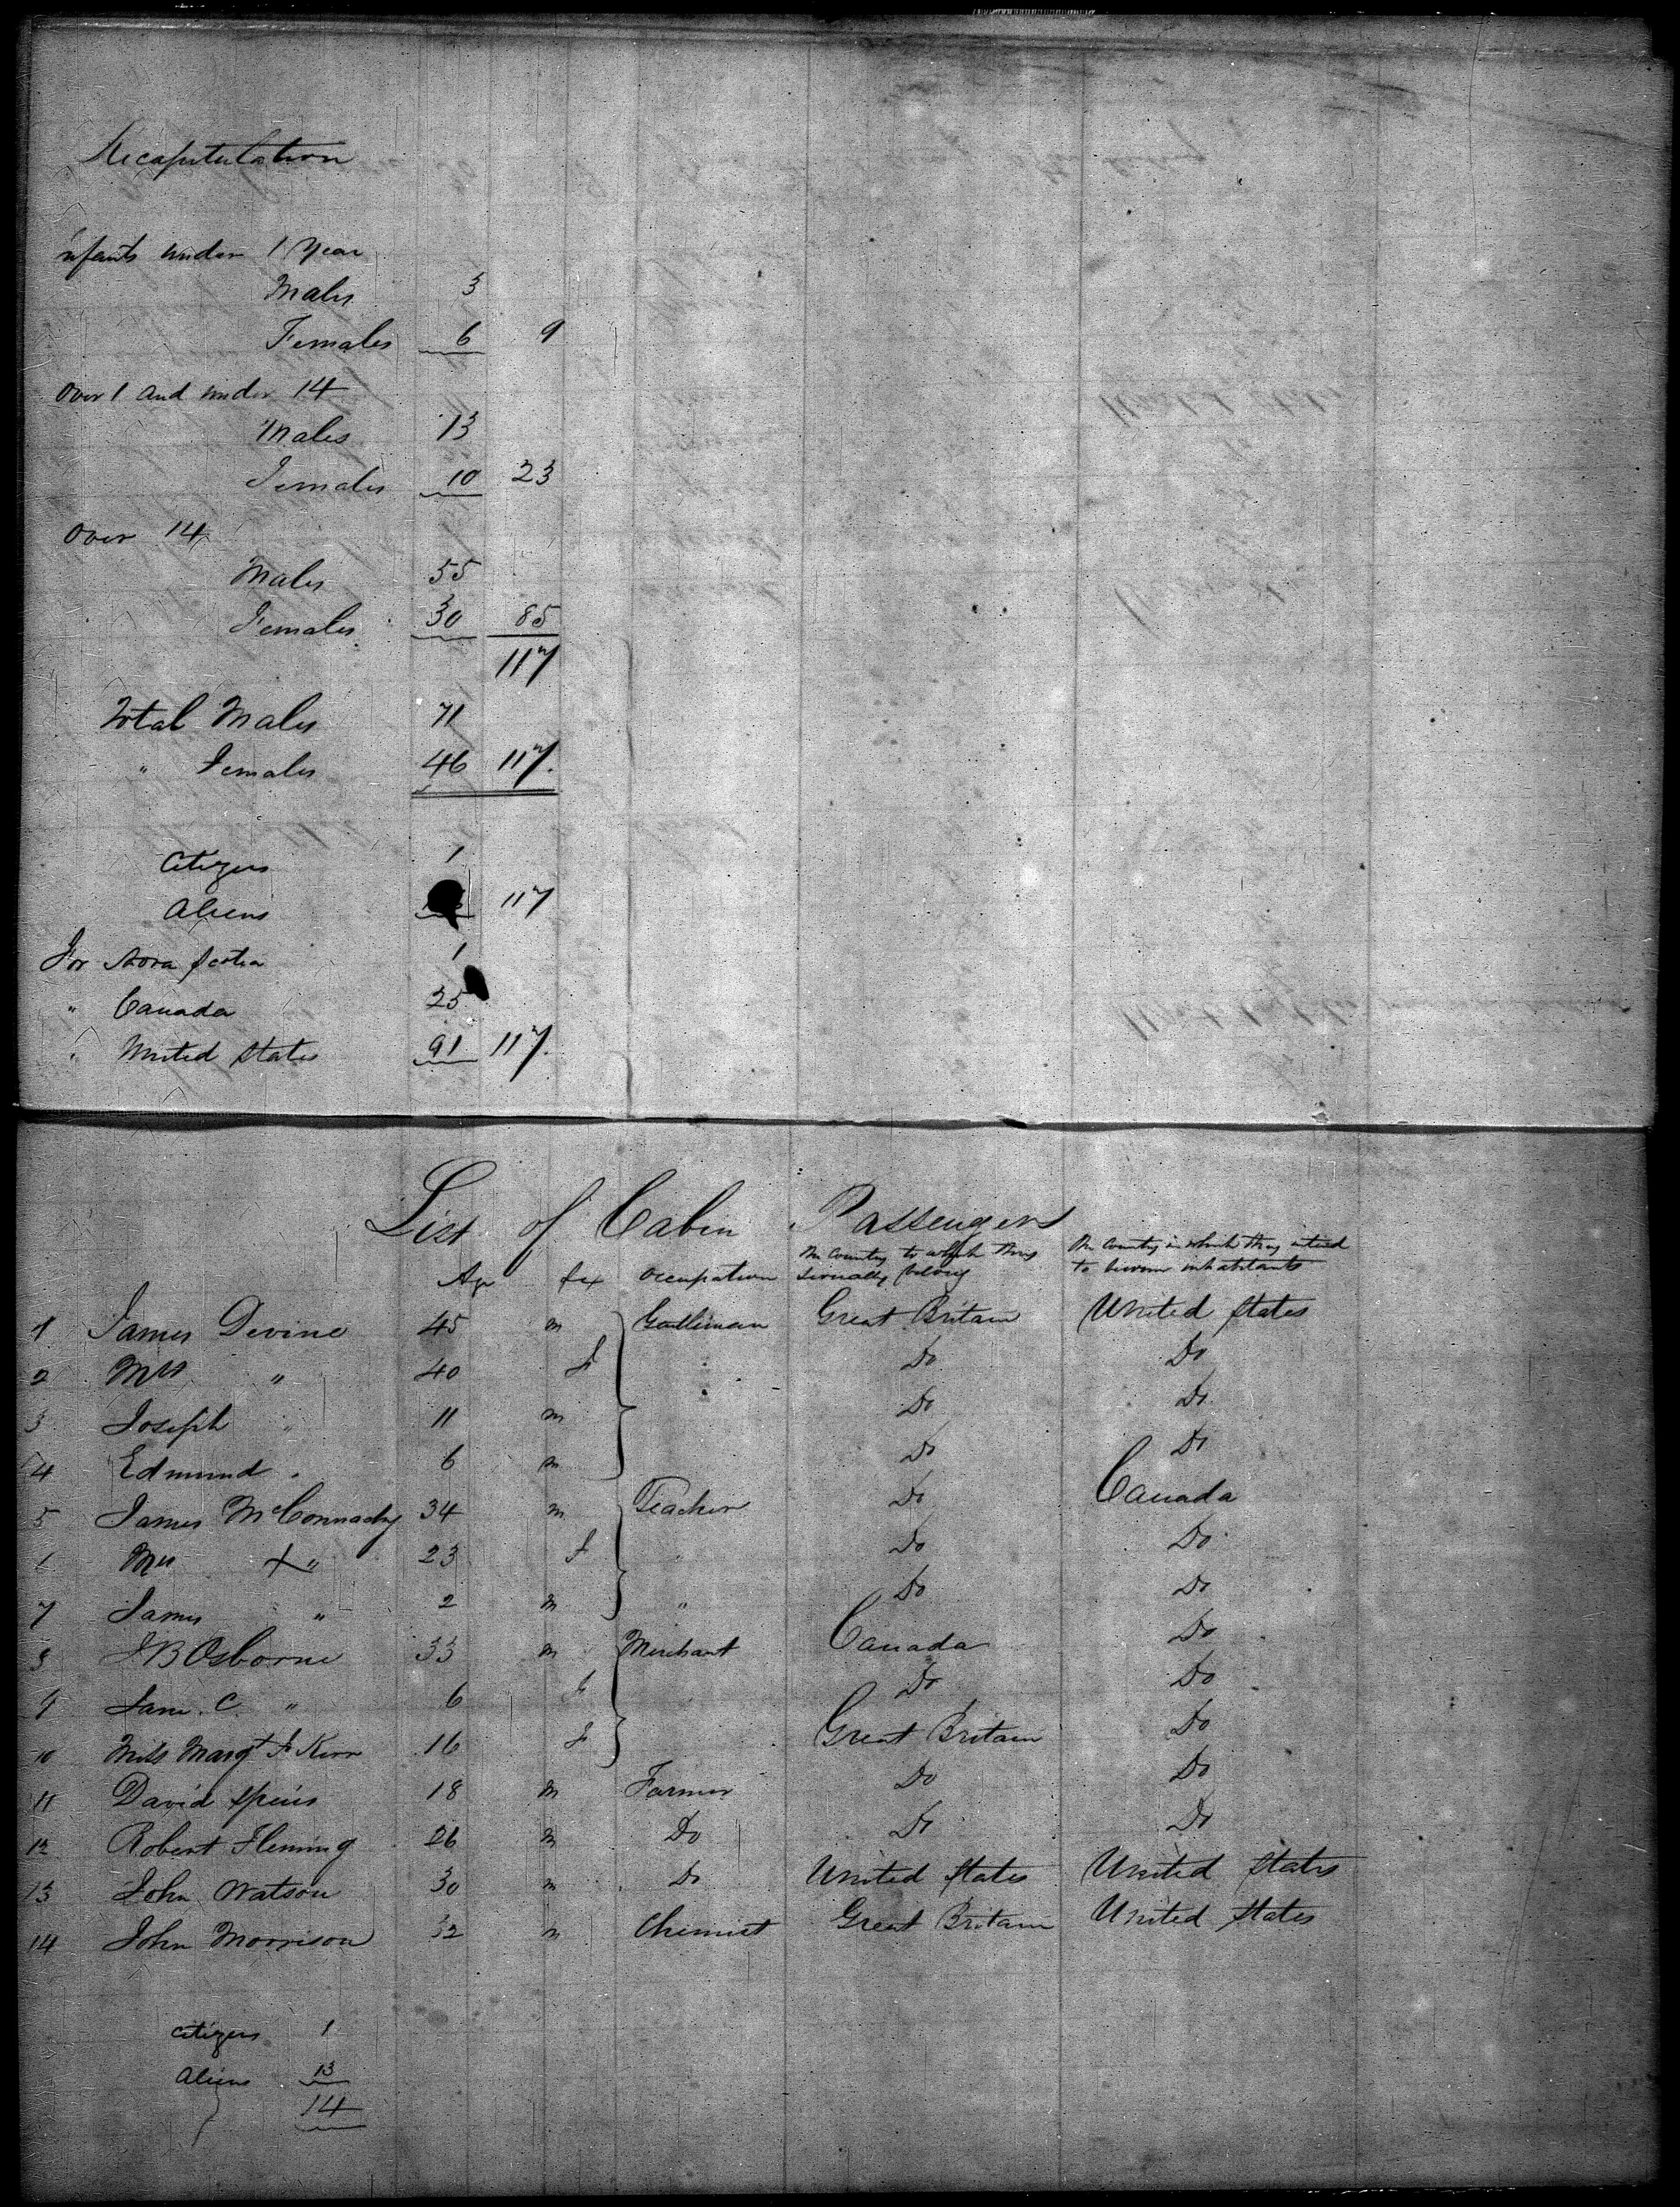 Recapitulation
nfants under 1 Year
Males 3
Females 6 9
Over 1 and under 14
Males 13
Females 10 23
Over 14
Males 55
Females 30 85
117
Total Males 71
" Females 46 117.
Citizens 1
Aliens 117
For Nova Scotia 1
" Canada 25
" United States 91 117.
List of Cabin Passengers
Age Sex Occupation The Country to which they severally belong The Country in which they intend to become inhabitants
1 James Devine 45 m Gentleman Great Britain United States
2 Mrs " 40 f Do Do
3 Joseph " 11 m Do Do
4 Edmund " 6 m Do Do
5 James McConnachy 34 m Teacher Do Canada
6 Mrs X " 23 f " Do Do
7 James " 2 m " Do Do
8 J B Osborne 33 m Merchant Canada Do
9 Jane. C. " 6 f Do Do
10 Miss Margt J Kerr 16 f Great Britain Do
11 David Speirs 18 m Farmer Do Do
12 Robert Fleming 26 m Do Do Do
13 John Watson 30 m Do United States United States
14 John Morrison 32 m Chemist Great Britain United States
Citizens 1
Aliens 13
14